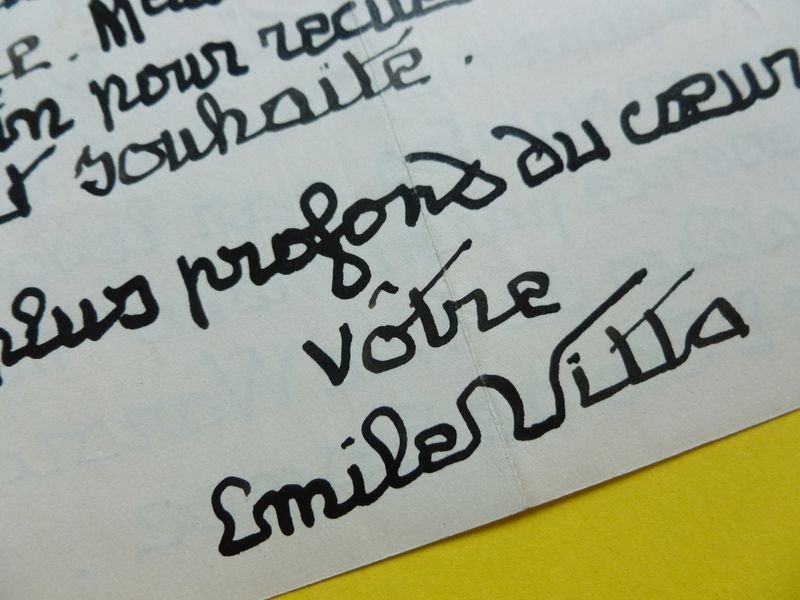 e. M
in pour recue
souhaité.
plus profond du cœur
vôtre
Emile Villa